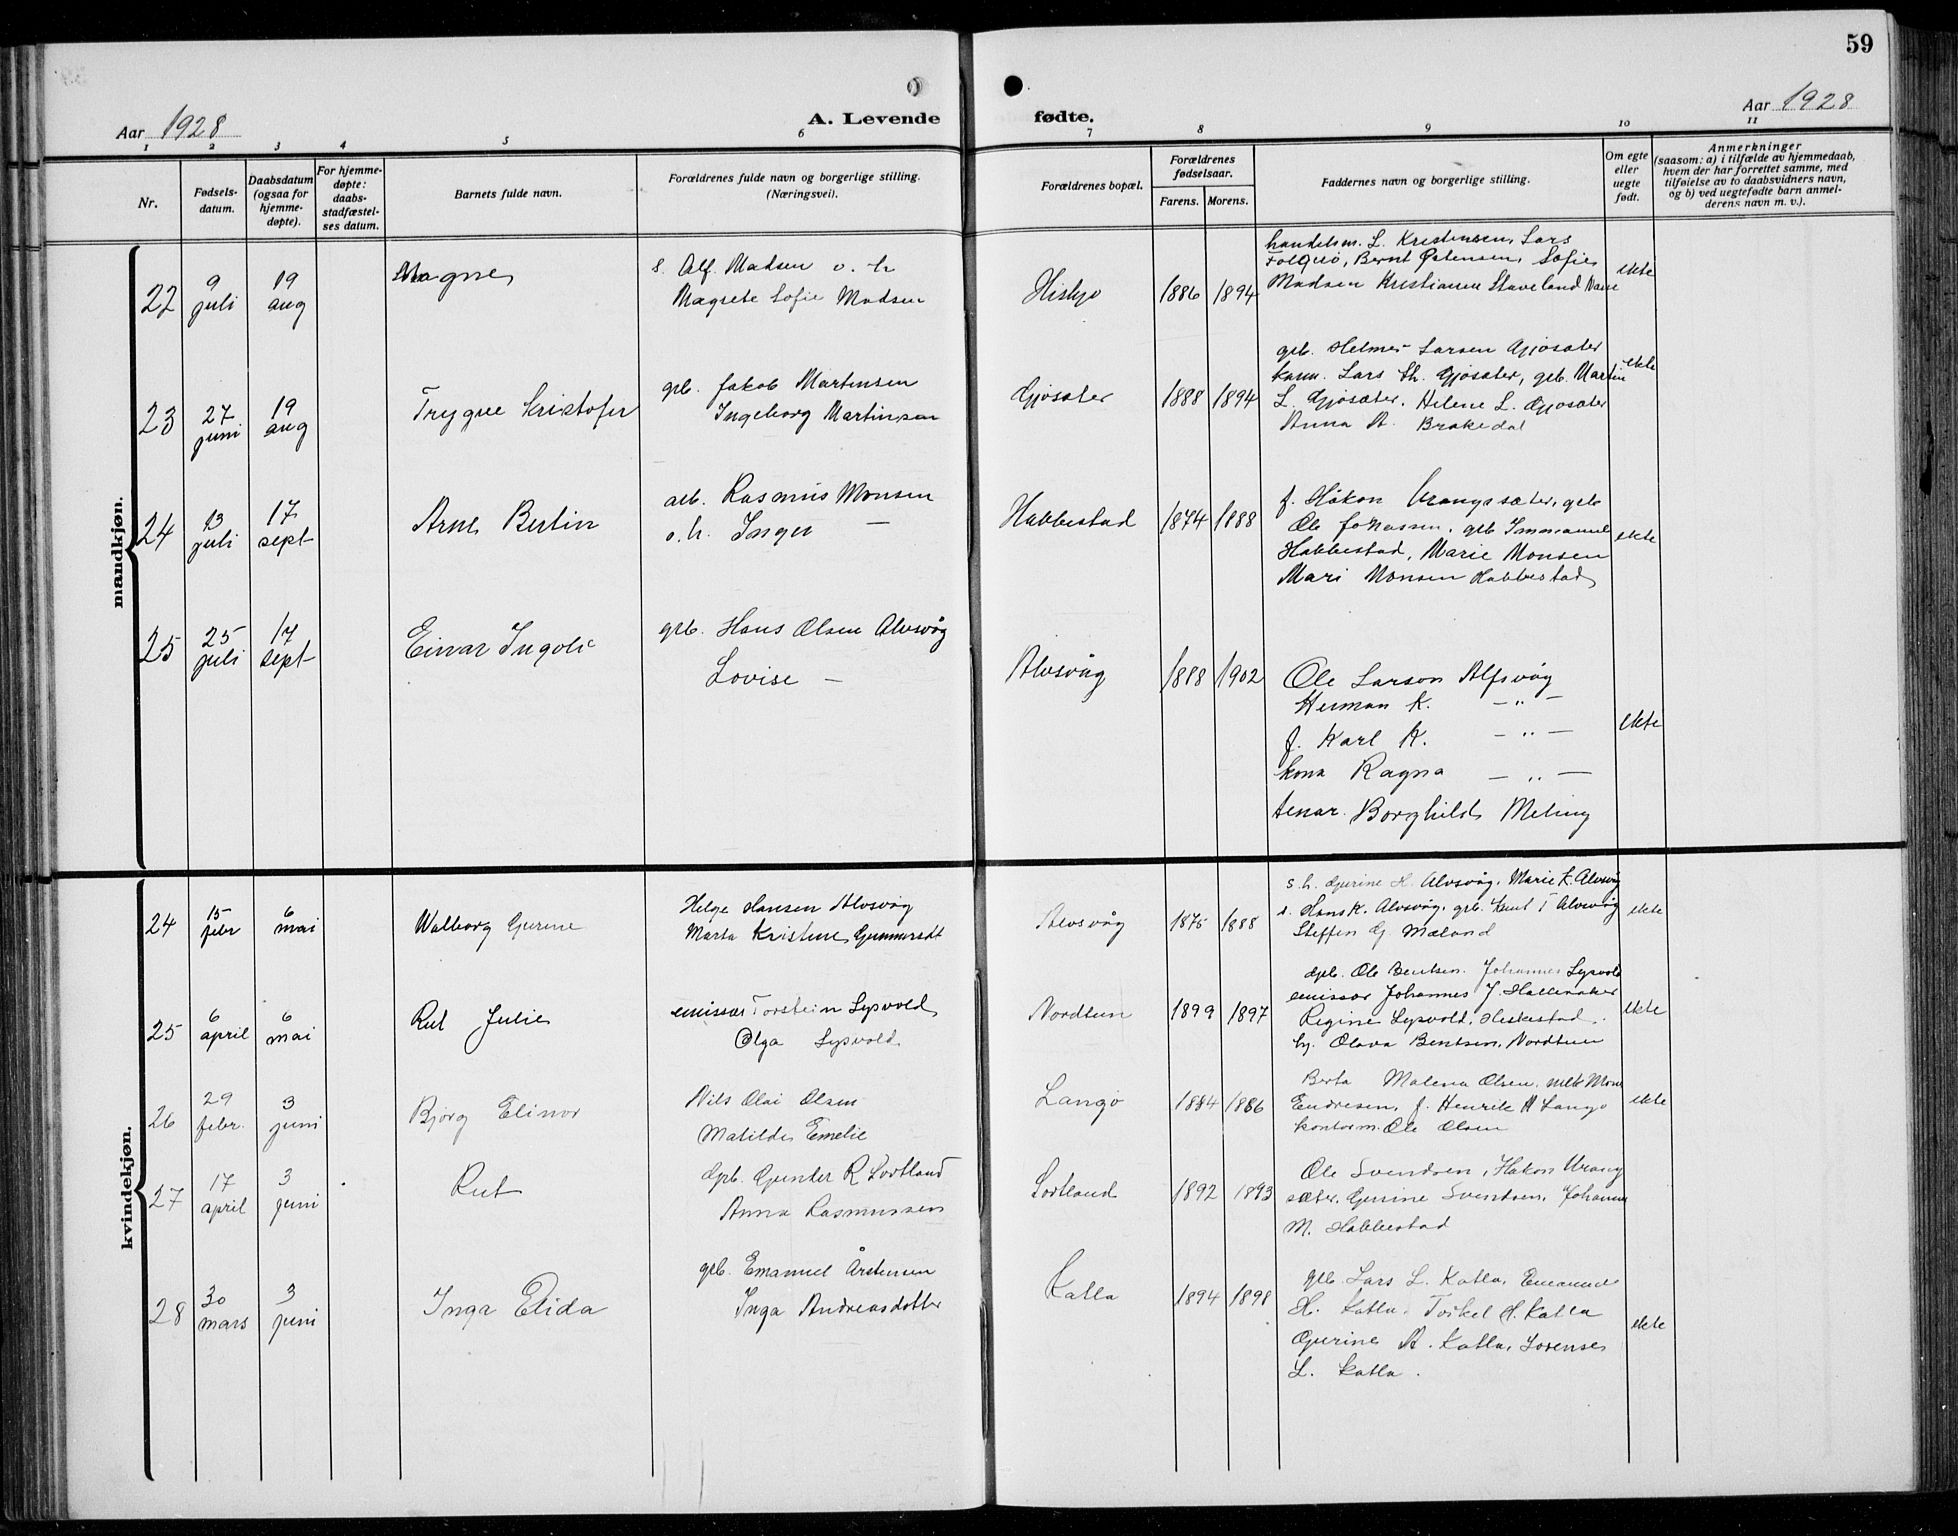 59
Aar 1928
A. Levende
fødte.
Aar 1928
1 2 3 4 5 6 7 8 9 10 11
Nr.
Fødsels-
datum.
Daabsdatum
(ogsaa for
hjemme-
døpte).
For hjemme-
døpte:
daabs-
stadfæstel-
ses datum.
Barnets fulde navn.
Forældrenes fulde navn og borgerlige stilling.
(Næringsvei).
Forældrenes bopæl.
Forældrenes
fødselsaar.
Farens. Morens.
Faddernes navn og borgerlige stilling.
Om egte
eller
uegte
født.
Anmerkninger
(saasom: a) i tilfælde av hjemmedaab,
hvem der har forrettet samme, med
tilføielse av to daabsvidners navn,
og b) ved uegtefødte barn anmel-
derens navn m. v.).
mandkjøn.
22
9
juli
19
aug
Magne
s. Alf. Madsen o. h
Magrete Sofie Madsen
1886 1894
handelsm. L. Kristensen, Lars
Folgerø, Bernt Østensen, Sofie
Madsen Kristianne Staveland
ekte
23
27
juni
19
aug
Trygve Kristofer
grb. Jakob Martinsen
Ingeborg Martinsen
Gjøsæter
1888 1894
grb. Helmer Larsen Gjøsæter
Lars Th. Gjøsæter, grb. Martin
L. Gjøsæter, Helene L. Gjøsæter
Anna A. Brakedal
ekte
24
13
juli
17
sept
Arne Bertin
arb. Rasmus Monsen
o. h. Inger —
Habbestad
1874 1888
f. Håkon Vrangssæter, grb
Ole Johassen, grb Immanuel
Habbestad, Marie Monsen
Mari Monsen Habbestad
ekte
25
25
juli
17
sept
Einar Ingolf
grb. Hans Olsen Alvsvåg
Lovise —
Alvsvåg
1888 1902
Ole Larson Alfsvåg
Herman K. — „ —
f. Karl K. — „ —
kona Ragna — „ —
Borghild Meling
ekte
kvindekjøn.
24
15
febr
6
mai
Walborg Gurine
Helge Hansen Alvsvåg
Marta Kristine Gunnarsdt
Alvsvåg
1875 1888
s. h. Gurine H. Alvsvåg, Marie K. Alvsvåg
s. Hans K. Alvsvåg, grb. Knut T Alvsvåg
Steffen G. Mæland
ekte
25
6
april
6
mai
Rut Julie
emissær Torstein Lysvold
Olga Lysvold
Nordtun
1899 1897
grb. Ole Bentsen. Johannes Lysvold
emissær Johannes J. Halleraker
Regine Lysvold, Heskestad.
Olava Bentsen, Nordtun
ekte
26
29
febr.
3
juni
Bjørg Elinor
Nils Olai Olsen
Matilde Emelie
Langø
1884 1886
Berta Malena Olsen,
Endresen, f. Henrik A Langø
kontorm. Ole Olsen
ekte
27
17
april
3
juni
Rut
grb. Gunder R Sortland
Anna Rasmussen
Sortland
1892 1893
Ole Svendsen, Hakon Vrang
sæter, Gurine Svendsen, Johanne
M. Habbestad
28
30
mars
3
juni
Inga Elida
grb. Emanuel Årstensen
Inga Andreasdotter
Katla
1894 1898
grb. Lars L. Katla, Emanuel
H. Katla, Torkel H. Katla
Gurine A. Katla, Lorense
L. Katla.
ekte